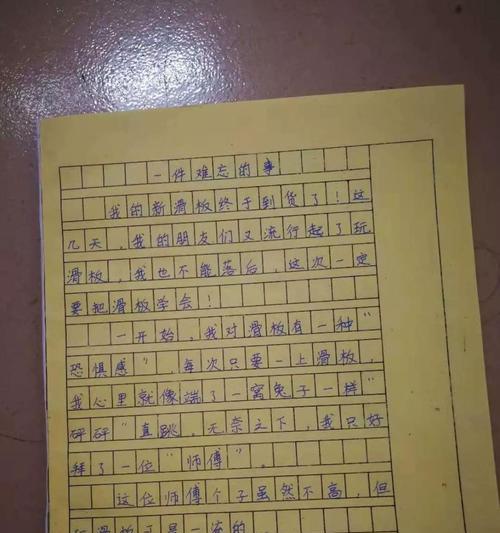 一件难忘的事
我的新滑板终于到货了！这
几天，我的朋友们又流行起了玩
滑板，我也不能落后，这次一定
要把滑板学会！
一开始，我对滑板有一种“
恐惧感”，每次只要一上滑板，
我心里就像端了一窝兔子一样“
砰砰”直跳，无奈之下，我只好
拜了一位“师傅”。
这位师傅个子虽然不高，但
滑板可是一流的，